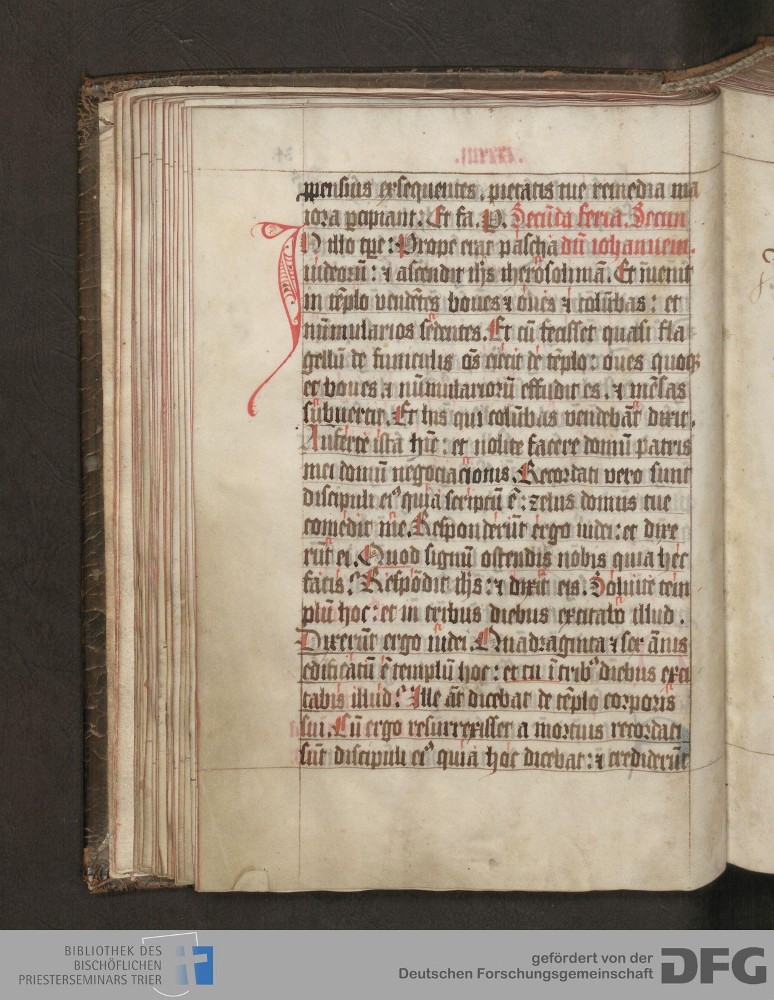 ppensius exsequentes. pietatis tue remedia ma
iora p̱cipiant: Et fa. P. Secu̅da feria. Secun
IN illo tp̅r̅e: Prope erat pascha du̅ iohannem.
iudeoru̅: ⁊ ascendit ih̅s iherosolima̅. Et i̅uenit
in te̅plo vende̅tes boues ⁊ oues ⁊ colu̅bas: et
nu̅mularios sedentes. Et cu̅ fecisset quasi fla
gellu̅ de funiculis o̅s eiecit de te̅plo: oues quoqꝫ
et boues ⁊ nu̅mularioru̅ effudit es. ⁊ me̅sas
subuertit. Et hijs qui colu̅bas vendeba̅t dixit.
Auferte ista hi̅c: et nolite facere domu̅ patris
mei domu̅ negociacionis. Recordati vero sunt
discipuli eiꝰ quia scriptu̅ e̅: zelus domus tue
comedit me. Responderu̅t ergo iudei: et dixe
ru̅t ei. Quod signu̅ ostendis nobis quia hec
facis? Respo̅dit ih̅s: ⁊ dixit eis. Soluite tem
plu̅ hoc: et in tribus diebus excitabo illud.
Dixeru̅t ergo iudei. Quadraginta ⁊ sex a̅nis
edificatu̅ e̅ templu̅ hoc: et tu i̅ tribꝰ diebus exci
tabis illud? Ille a̅t dicebat de te̅plo corporis
sui. Cu̅ ergo resurrexisset a mortuis recordati
su̅t discipuli eiꝰ quia hoc dicebat: ⁊ credideru̅t
BIBLIOTHEK DES
BISCHÖFLICHEN
PRIESTERSEMINARS TRIER
gefördert von der
Deutschen Forschungsgemeinschaft
DFG